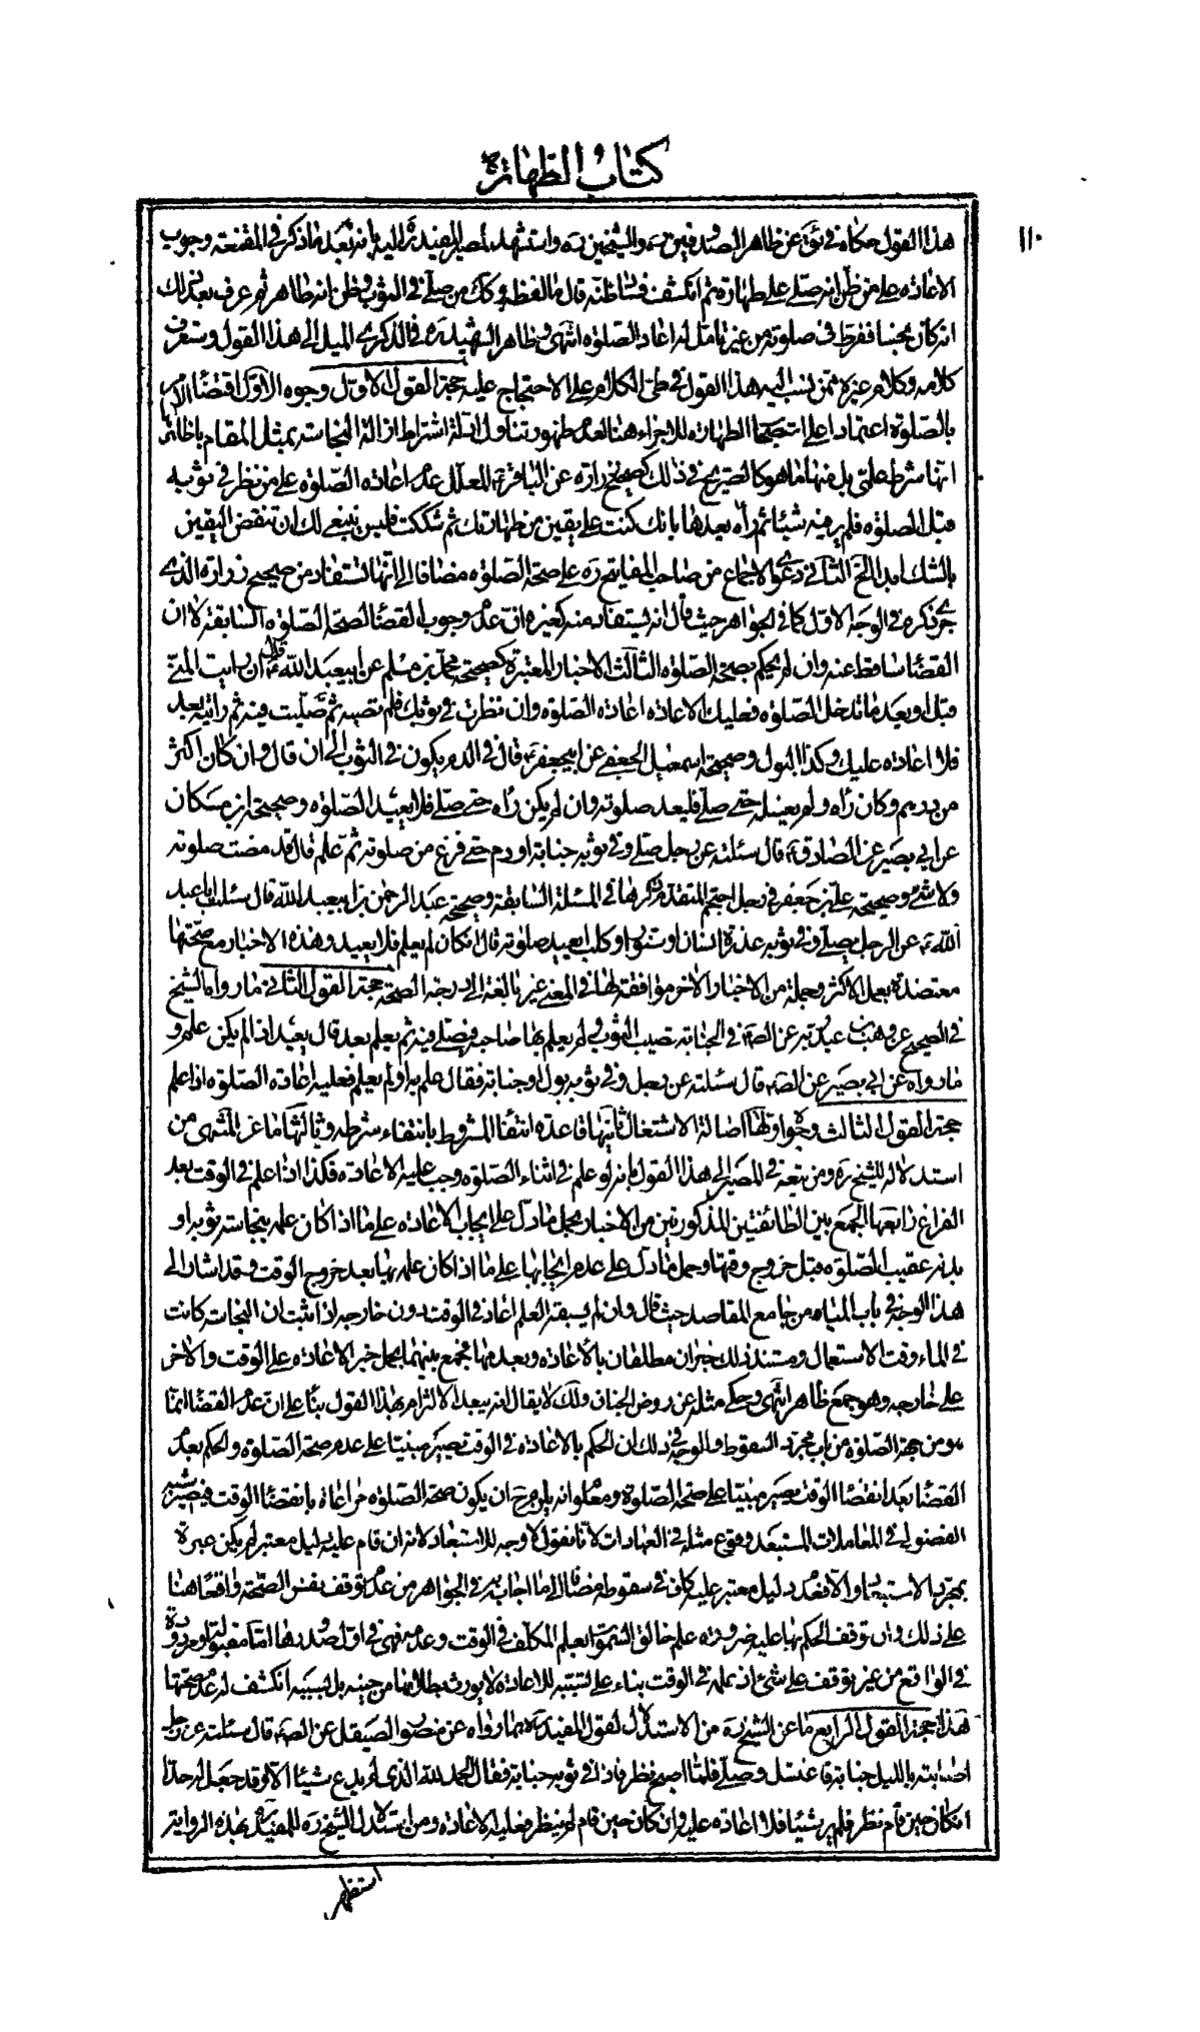 كتاب الطهارة
١١٠
هذا القول حكاه في عن ظاهر الصدوقين والشيخين ره واستشهد لمصير المفيد ره اليه بانه بعد ما ذكر في المقنعة وجوب
الاعادة على من ظن انه صلى على طهارة ثم انكشف فساد ظنه قال ما لفظه وكك من صلى في الثوب وظن انه طاهر ثم عرف بعد ذلك
انه كان نجسا ففرط في صلوته من غير تامل له اعاد الصلوة انتهى وظاهر الشهيد ره في الذكرى الميل الى هذا القول وستعرف
كلامه وكلام غيره ممن نسب اليه هذا القول في طي الكلام على الاحتجاج عليه حجة القول الاول وجوه الاول اقتضاء الامر
بالصلوة اعتمادا على استصحاب الطهارة للاجزاء هنا لعدم ظهور تناول ادلة اشتراط ازالة النجاسة بمثل المقام بل ظاهر
انها شرط علمي بل منها ما هو كالصريح في ذلك كصحيح زرارة عن الباقر ع المعلل عدم اعادة الصلوة على من نظر في ثوبه
قبل الصلوة فلم ير فيه شيئا ثم رآه بعدها بانك كنت على يقين من طهارتك ثم شككت فليس ينبغي لك ان تنقض اليقين
بالشك ابدا الخ الثاني دعوى الاجماع من صاحب المفاتيح ره على صحة الصلوة مضافا الى انها تستفاد من صحيح زرارة الذي
جرى ذكره في الوجه الاول كما في الجواهر حيث قال انه يستفاد منه كغيره ان عدم وجوب القضاء لصحة الصلوة السابقة لا ان
القضاء ساقط عنه وان لم يحكم بصحة الصلوة الثالث الاخبار المعتبرة كصحيحة محمد بن مسلم عن ابيعبد الله ع قال ان رايت المني
قبل او بعد ما تدخل الصلوة فعليك الاعادة اعادة الصلوة وان نظرت في ثوبك فلم تصبه ثم صليت فيه ثم رايته بعد
فلا اعادة عليك وكذا البول وصحيحة اسمعيل الجعفي عن ابيجعفر ع قال في الدم يكون في الثوب الى ان قال وان كان اكثر
من درهم وكان رآه ولم يغسله حتى صلى فليعد صلوته وان لم يكن رآه حتى صلى فلا يعيد الصلوة وصحيحة ابن مسكان
عن ابي بصير عن الصادق ع قال سئلته عن رجل صلى وفي ثوبه جنابة او دم حتى فرغ من صلوته ثم علم قال قد مضت صلوته
ولا شئ وصحيحة علي بن جعفر في رجل احتجم المتقدم ذكرها في المسئلة السابقة وصحيحة عبد الرحمن بن ابيعبد الله قال سئلت ابا عبد
الله ع عن الرجل يصلي وفي ثوبه عذرة انسان او سنور او كلب ايعيد صلوته قال ان كان لم يعلم فلا يعيد وهذه الاخبار مع صحتها
معتضدة بعمل الاكثر وجملة من الاخبار الاخر موافقة لها في المعنى غير بالغة الى درجة الصحة حجة القول الثاني ما رواه الشيخ
في الصحيح عن وهب بن عبد ربه عن الص ع في الجنابة تصيب الثوب ولم يعلم بها صاحبه فيصلي فيه ثم يعلم بعد قال يعيد اذا لم يكن علم و
ما رواه عن ابي بصير عن الص ع قال سئلته عن رجل وفي ثوبه بول او جنابة فقال علم به او لم يعلم فعليه اعادة الصلوة اذا علم
حجة القول الثالث وجوه اولها اصالة الاشتغال ثانيها قاعدة انتفاء المشروط بانتفاء شرطه وثالثها ما عن المنتهى من
استدلاله للشيخ ره ومن تبعه في المصير الى هذا القول بانه لو علم في اثناء الصلوة وجب عليه الاعادة فكذا اذا علم في الوقت بعد
الفراغ رابعها الجمع بين الطائفتين المذكورتين من الاخبار بحمل ما دل على ايجاب الاعادة على ما اذا كان علمه بنجاسة ثوبه او
بدنه عقيب الصلوة قبل خروج وقتها وحمل ما دل على عدم ايجابها على ما اذا كان علمه بها بعد خروج الوقت وقد اشار الى
هذا الوجه في باب المياه من جامع المقاصد حيث قال وان لم يسبقه العلم اعاد في الوقت دون خارجه اذا ثبت ان النجاسة كانت
في الماء وقت الاستعمال ومستند ذلك خبران مطلقان بالاعادة وبعدمها فجمع بينهما بحمل خبر الاعادة على الوقت والاخر
على خارجه وهو جمع ظاهر انتهى وحكى مثله عن روض الجنان ولك لا يقال انه يبعد الالتزام بهذا القول بناء على ان عدم القضاء انما
هو من جهة الصلوة من باب مجرد السقوط والوجه في ذلك ان الحكم بالاعادة في الوقت يصير مبنيا على عدم صحة الصلوة والحكم بعدم
القضاء بعد انقضاء الوقت يصير مبنيا على صحة الصلوة ومعلوم انه يلزم ح ان يكون صحة الصلوة مراعاة بانقضاء الوقت فيصير شبه
الفضولي في المعاملات المستبعد وقوع مثله في العبادات لانا نقول لا وجه للاستبعاد لانه ان قام عليه دليل معتبر لم يكن عبرة
بمجرد الاستبعاد والا فعدم دليل معتبر عليه كاف في سقوطه مضافا الى ما اجاب به في الجواهر من عدم توقف نفس الصحة واقعا هنا
على ذلك وان توقف الحكم بها عليه ضرورة علم خالق السموات بعلم المكلف في الوقت وعدمه فهي في اول صدورها اما مقبولة او مردودة
في الواقع من غير توقف على شئ اذ علمه في الوقت بناء على تسببه للاعادة لا يورث بطلانها من حينه بل بسببه انكشف له عدم صحتها
هذا حجة القول الرابع ما عن الشيخ ره من الاستدلال لقول المفيد ره بما رواه عن منصور الصيقل عن الص ع قال سئلته عن رجل
اصابته بالليل جنابة فاغتسل وصلى فلما اصبح نظر فاذا في ثوبه جنابة فقال الحمد لله الذي لم يدع شيئا الا وقد جعل له حدا
ان كان حين قام نظر فلم ير شيئا فلا اعادة عليه وان كان حين قام لم ينظر فعليه الاعادة ومن استدلال الشيخ ره للمفيد ره بهذه الرواية
استظهر